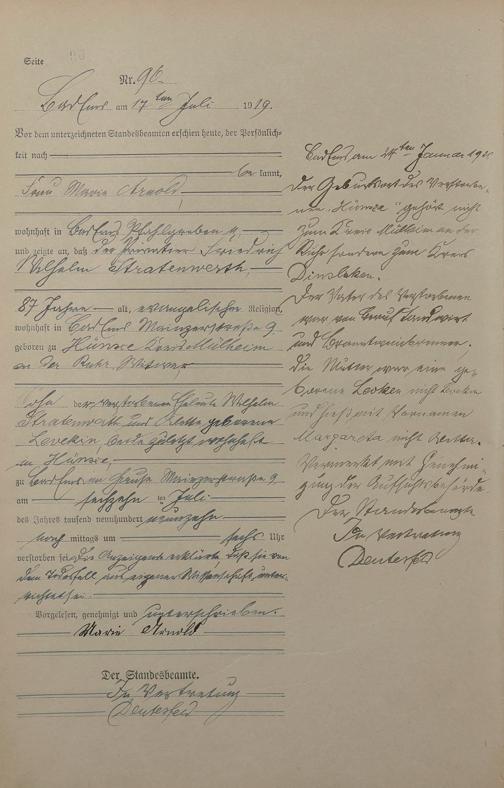 Seite
Nr. 96.
Bad Ems am 17ten Juli 1919.
Vor dem unterzeichneten Standesbeamten erschien heute, der Persönlich-
keit nach
be kannt,
Frau Marie Arnold,
wohnhaft in Bad Ems Pfahlgraben 9,
und zeigte an, daß der Privatier Friedrich
Wilhelm Stratenwerth,
87 Jahre alt, evangelischer Religion,
wohnhaft in Bad Ems Mainzerstraße 9
geboren zu Hünxe Kreis Mülheim
an der Ruhr, Witwer
Sohn der verstorbenen Eheleute Wilhelm
Stratenwerth und geborene
beide zuletzt wohnhaft
in Hünxe,
zu Bad Ems im Hause Mainzerstraße 9
am sechzehnten Juli
des Jahres tausend neunhundert neunzehn
nach mittags um sechs Uhr
verstorben sei. Die Anzeigende erklärte, daß sie von
dem Todesfall aus eigener Wissenschaft unter-
richtet sei.
Vorgelesen, genehmigt und unterschrieben.
Marie Arnold
Der Standesbeamte.
In Vertretung
Deuterfeld
Bad Ems am 24ten Januar
Der Geburtsort des Verstorbe-
nen "Hünxe" gehört nicht
zum Kreis Mülheim an der
Ruhr sondern zum Kreis
Dinslaken.
Der Vater des Verstorbenen
war von Beruf Landwirt
und Branntweinbrenner,
die Mutter war eine ge-
borene nicht
und hieß mit Vornamen
Margareta nicht
Vermerkt mit Genehmi-
gung der Aufsichtsbehörde
Der Standesbeamte
In Vertretung
Deuterfeld